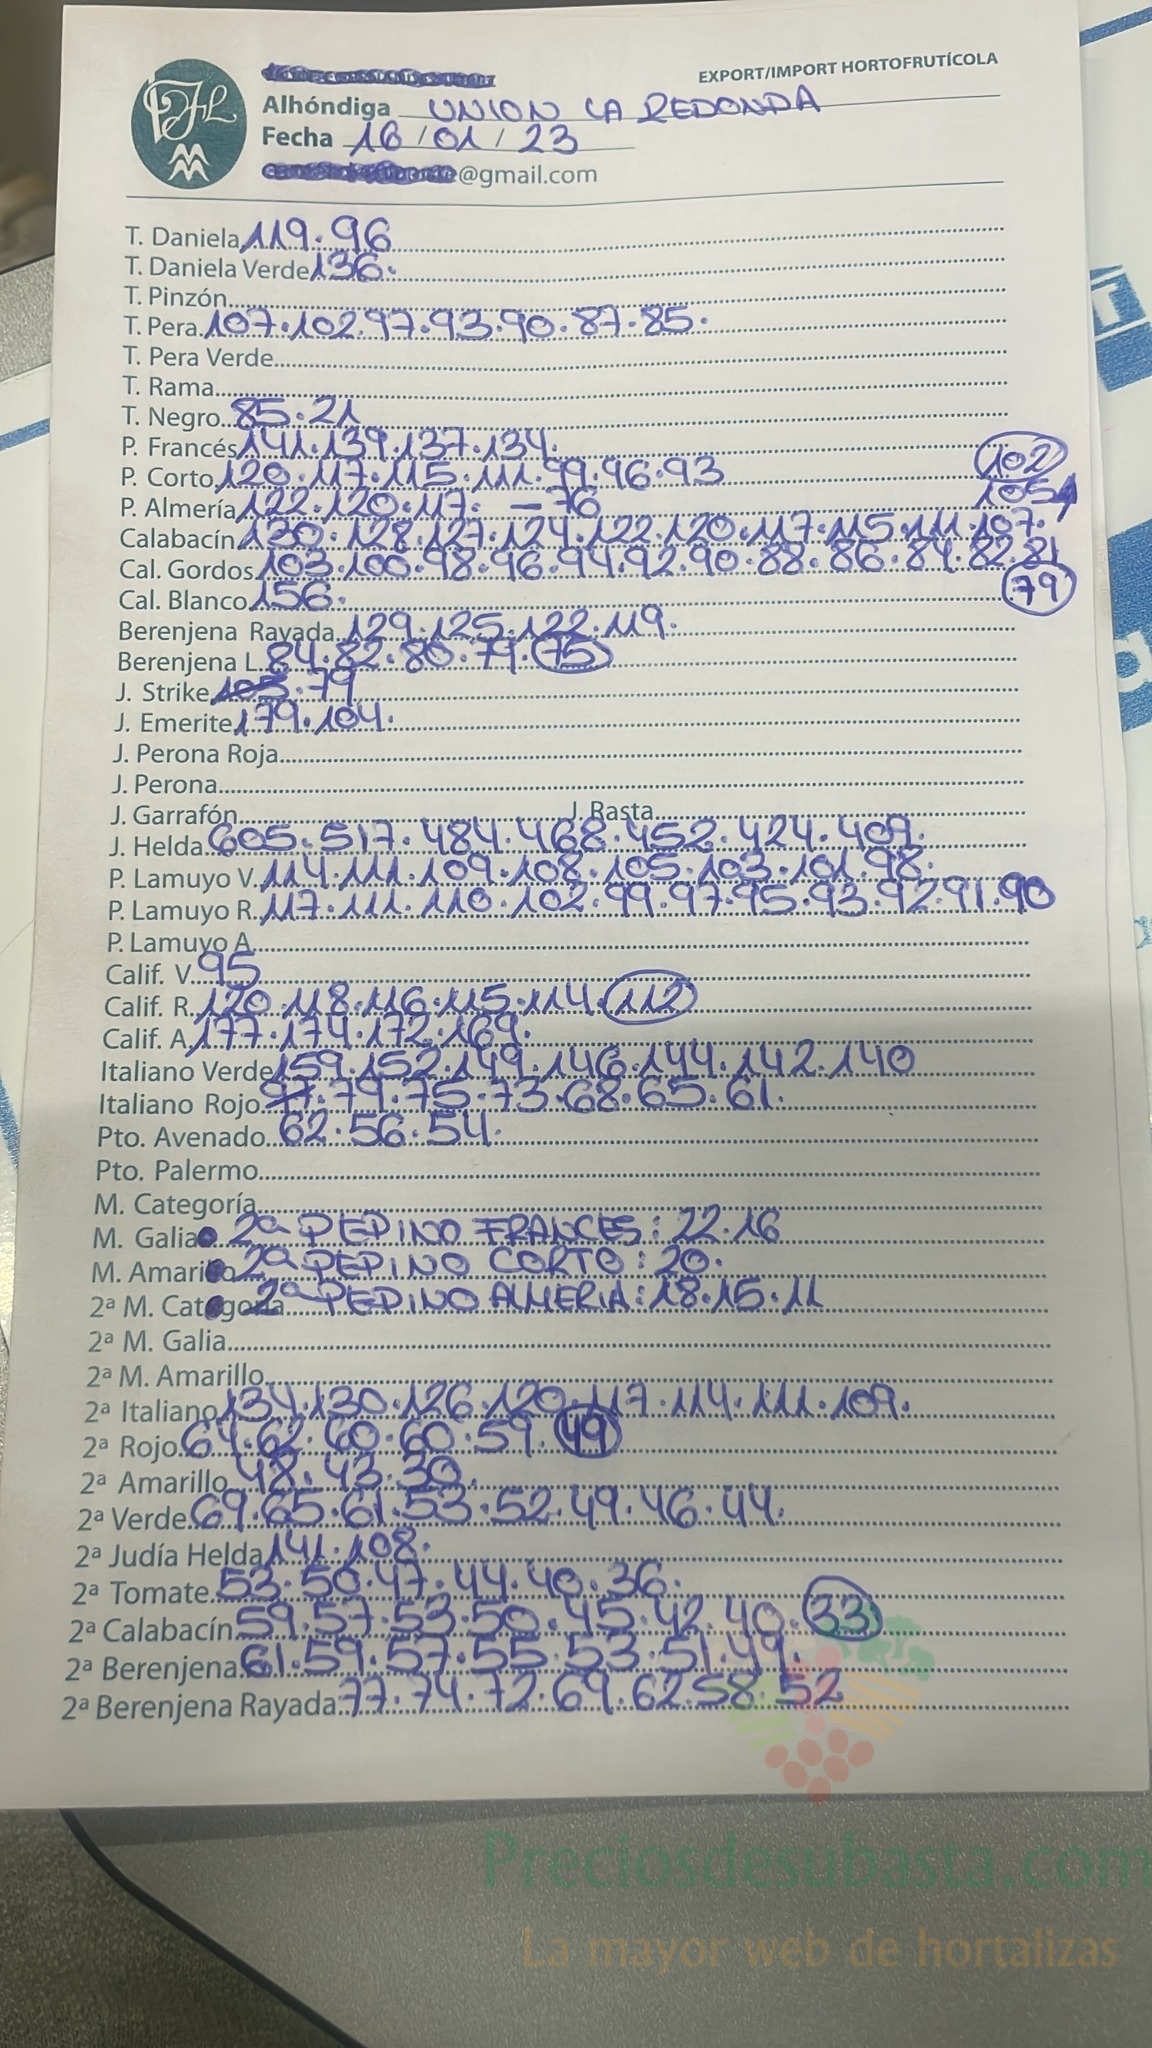 EXPORT/IMPORT HORTOFRUTÍCOLA
Alhóndiga UNION LA REDONDA
Fecha 16/01/23
e@gmail.com
T. Daniela 119.96
T. Daniela Verde 136.
T. Pinzón
T. Pera 107.102.97.93.90.87.85.
T. Pera Verde
T. Rama
T. Negro 85.21
P. Francés 141.139.137.134.
P. Corto 120.117.115.111.99.96.93
P. Almería 122.120.117. - 76
102
105
Calabacín 130.128.127.124.122.120.117.115.111.107.
Cal. Gordos 103.100.98.96.94.92.90.88.86.84.82.81
79
Cal. Blanco 156.
Berenjena Rayada 129.125.122.119.
Berenjena L. 84.82.80.79.75
J. Strike 103.79
J. Emerite 179.104.
J. Perona Roja
J. Perona
J. Garrafón J. Rasta
J. Helda 605.517.484.468.452.424.409.
P. Lamuyo V. 114.111.109.108.105.103.101.98.
P. Lamuyo R. 117.111.110.102.99.97.95.93.92.91.90
P. Lamuyo A.
Calif. V. 95
Calif. R. 120.118.116.115.114.112
Calif. A. 177.174.172.169.
Italiano Verde 159.152.149.146.144.142.140
Italiano Rojo 97.79.75.73.68.65.61.
Pto. Avenado 62.56.54.
Pto. Palermo
M. Categoría
M. Galia 2ª PEPINO FRANCES: 22.16
M. Amarillo 2ª PEPINO CORTO: 20.
2ª M. Categoría 2ª PEPINO ALMERIA: 18.15.11
2ª M. Galia
2ª M. Amarillo
2ª Italiano 134.130.126.120.117.114.111.109.
2ª Rojo 64.62.60.60.59.49
2ª Amarillo 48.43.30.
2ª Verde 69.65.61.53.52.49.46.44.
2ª Judía Helda 141.108.
2ª Tomate 53.50.47.44.40.36.
2ª Calabacín 59.57.53.50.45.42.40.33
2ª Berenjena 61.59.57.55.53.51.49.
2ª Berenjena Rayada 77.74.72.69.62.58.52
Preciosdesubasta.com
La mayor web de hortalizas